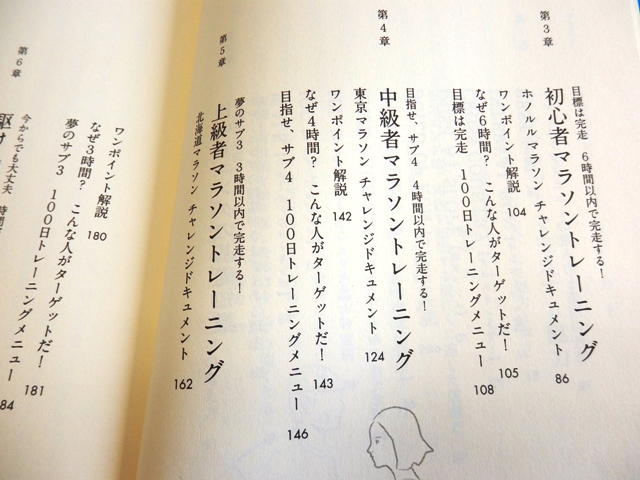 第3章
目標は完走　6時間以内で完走する！
初心者マラソントレーニング
ホノルルマラソン　チャレンジドキュメント　86
ワンポイント解説　104
なぜ6時間？　こんな人がターゲットだ！　105
目標は完走　100日トレーニングメニュー　108
第4章
目指せ、サブ4　4時間以内で完走する！
中級者マラソントレーニング
東京マラソン　チャレンジドキュメント　124
ワンポイント解説　142
なぜ4時間？　こんな人がターゲットだ！　143
目指せ、サブ4　100日トレーニングメニュー　146
第5章
夢のサブ3　3時間以内で完走する！
上級者マラソントレーニング
北海道マラソン　チャレンジドキュメント　162
ワンポイント解説　180
なぜ3時間？　こんな人がターゲットだ！　181
夢のサブ3　100日トレーニングメニュー　184
第6章
今からでも大丈夫
駆け